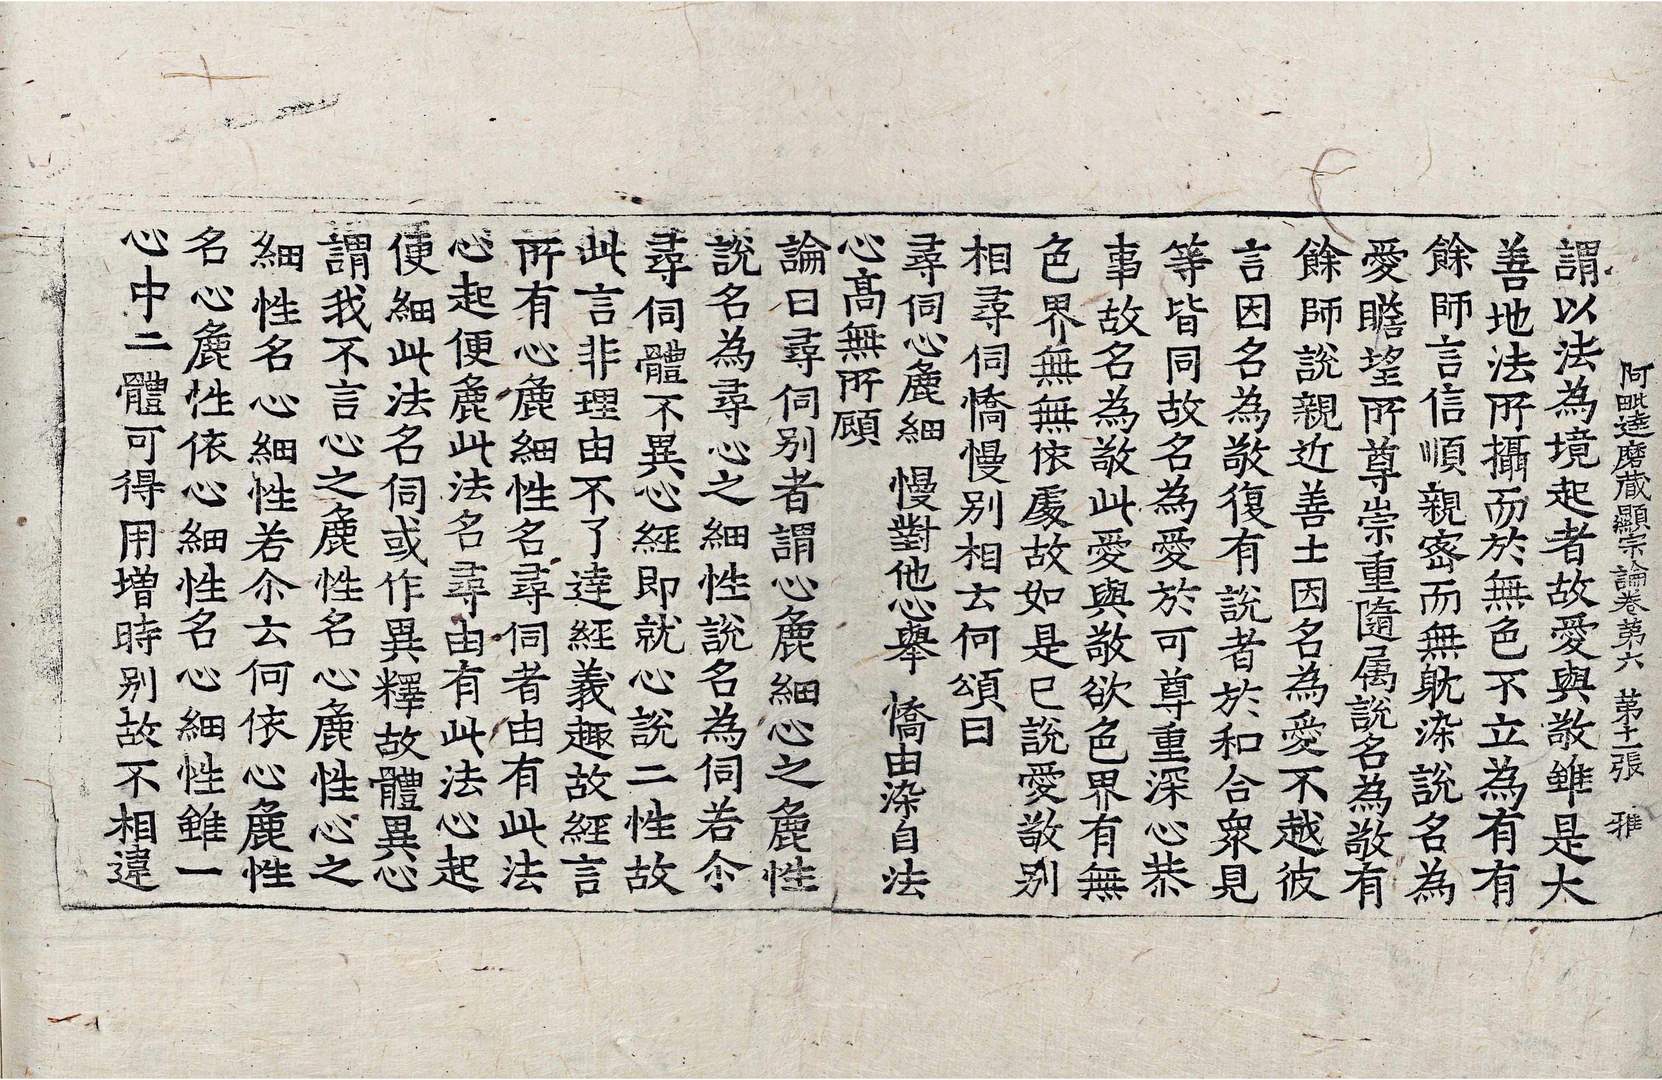 阿毗達磨藏顯宗論卷第六 第十一張 雅
謂以法為境起者故愛與敬雖是大
善地法所攝而於無色不立為有有
餘師言信順親密而無躭染說名為
愛瞻望所尊崇重隨属說名為敬有
餘師說親近善士因名為愛不越彼
言因名為敬復有說者於和合衆見
等皆同故名為愛於可尊重深心恭
事故名為敬此愛與敬欲色界有無
色界無無依處故如是已說愛敬別
相尋伺憍慢別相云何頌曰
尋伺心麁細 慢對他心舉 憍由染自法
心高無所顧
論曰尋伺別者謂心麁細心之麁性
說名為尋心之細性說名為伺若尒
尋伺體不異心經即就心說二性故
此言非理由不了達經義趣故經言
所有心麁細性名尋伺者由有此法
心起便麁此法名尋由有此法心起
便細此法名伺或作異釋故體異心
謂我不言心之麁性名心麁性心之
細性名心細性若尒云何依心麁性
名心麁性依心細性名心細性雖一
心中二體可得用增時別故不相違